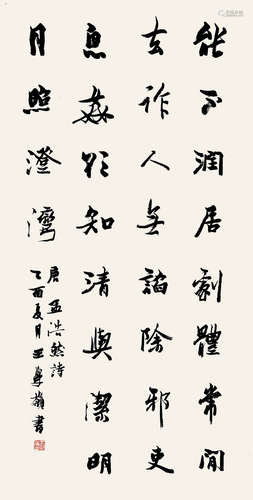 能不润居劇體常閒
去詐人無諂除邪吏
息姦欲知清與潔明
月照澄灣
唐孟浩然詩
乙酉夏月王學嶺書